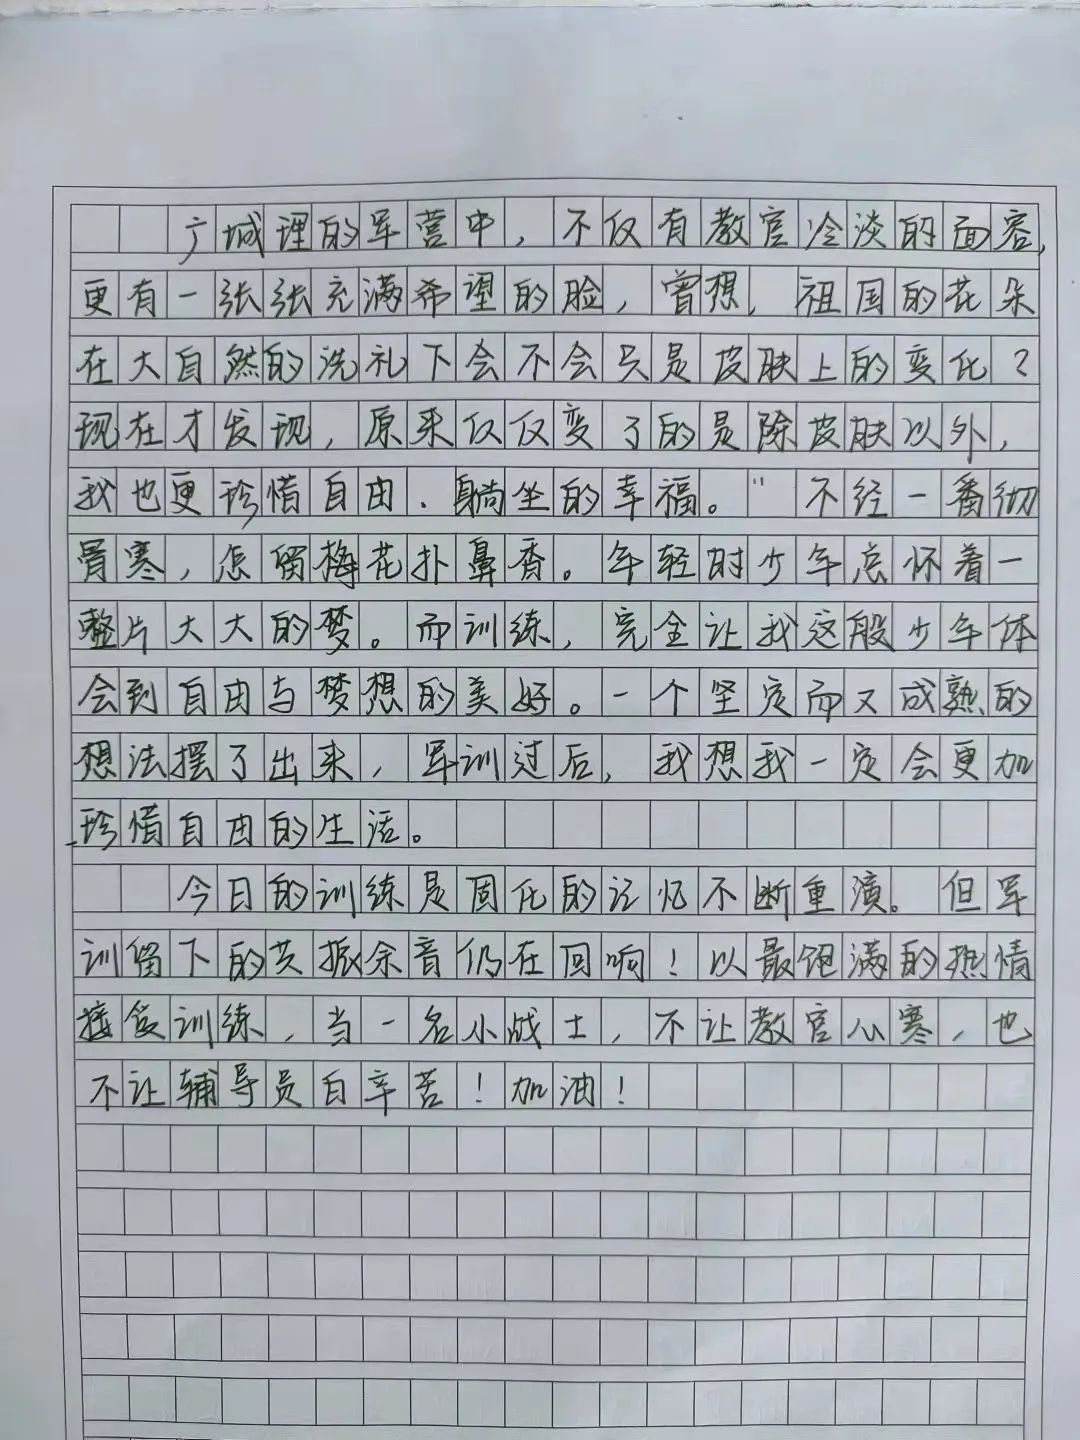 广城理的军营中，不仅有教官冷淡的面容，
更有一张张充满希望的脸，曾想，祖国的花朵
在大自然的洗礼下会不会只是皮肤上的变化？
现在才发现，原来仅仅变了的是除皮肤以外，
我也更珍惜自由、躺坐的幸福。“不经一番彻
骨寒，怎留梅花扑鼻香。年轻时少年总怀着一
整片大大的梦。而训练，完全让我这般少年体
会到自由与梦想的美好。一个坚定而又成熟的
想法摆了出来，军训过后，我想我一定会更加
珍惜自由的生活。
今日的训练是固化的记忆不断重演。但军
训留下的共振余音仍在回响！以最饱满的热情
接受训练，当一名小战士，不让教官心寒，也
不让辅导员白辛苦！加油！